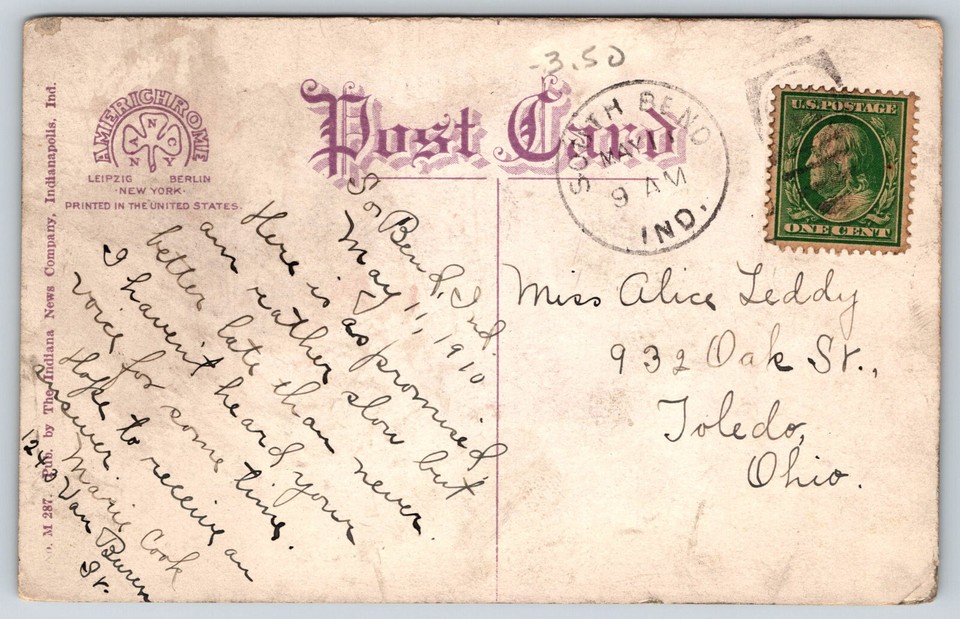 -3.50
AMERICHROME
NANCY
LEIPZIG BERLIN
·NEW YORK·
PRINTED IN THE UNITED STATES.
Post Card
SOUTH BEND
MAY 11
9 AM
IND.
U.S. POSTAGE
ONE CENT
M 287. Pub. by The Indiana News Company, Indianapolis, Ind.
So. Bend, Ind.
May 11, 1910
Here is as promised,
am rather slow but
better late than never.
I haven't heard your
voice for some time.
Hope to receive an
answer.
Marie Cook
Van Buren
St.
Miss Alice Leddy
932 Oak St.,
Toledo,
Ohio.